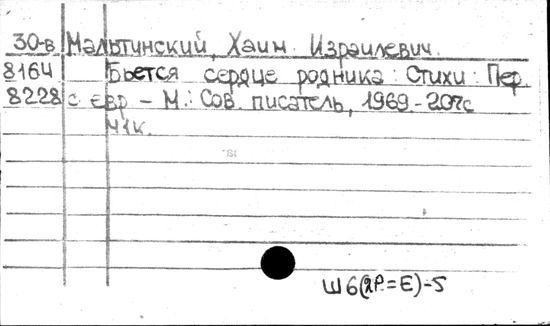 30-в Мальтинский, Хаим Израилевич.
8164 Бьется сердце родника: Стихи: Пер.
8228 с евр – М.: Сов. писатель, 1969 - 207с
Ч1к.
Ш6(2Р=Е)-5